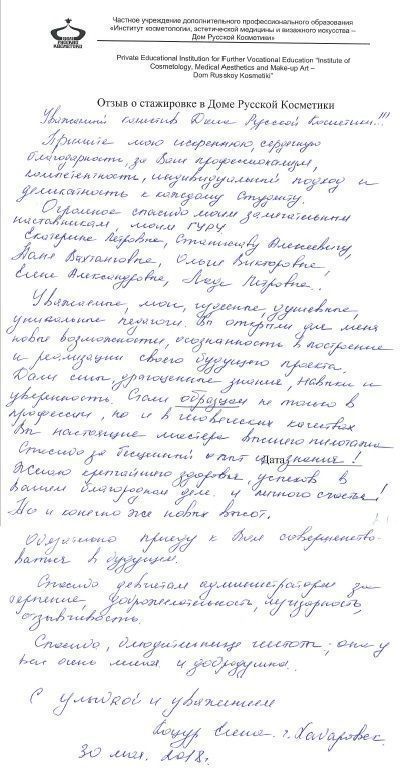 Частное учреждение дополнительного профессионального образования
«Институт косметологии, эстетической медицины и визажного искусства –
Дом Русской Косметики»
Private Educational Institution for Further Vocational Education "Institute of
Cosmetology, Medical Aesthetics and Make-up Art –
Dom Russkoy Kosmetiki"
Отзыв о стажировке в Доме Русской Косметики
Уважаемый коллектив Дома Русской Косметики!!!
Примите мою искреннюю, сердечную
благодарность, за Ваш профессионализм,
компетентность, индивидуальный подход и
деликатность к каждому студенту.
Огромное спасибо моим замечательным
наставникам, моим ГУРУ
Екатерине Петровне, Станиславу Алексеевичу,
Вахтанговне, Ольге Викторовне,
Елене Александровне, Петровне.
Уважаемые, мои, чудесные, душевные,
уникальные педагоги. Вы открыли для меня
новые возможности, осознанность в построение
и реализации своего будущего проекта.
Дали силы, драгоценные знания, навыки и
уверенность. Стали образцом не только в
профессии, но и в человеческих качествах
Вы настоящие мастера высшего пилотажа
Спасибо за бесценный опыт и знания!
Дата
Желаю крепчайшего здоровья, успехов в
Вашем благородном деле. и личного счастья!
Но и конечно же новых высот.
Обязательно приеду к Вам совершенство-
ваться в будущем.
Спасибо девчатам администраторам за
терпение, доброжелательность, лучезарность,
отзывчивость.
Спасибо, блюстительнице чистоты, она у
Вас очень милая и добродушна.
С улыбкой и уважением
Елена г. Хабаровск.
30 мая. 2018г.